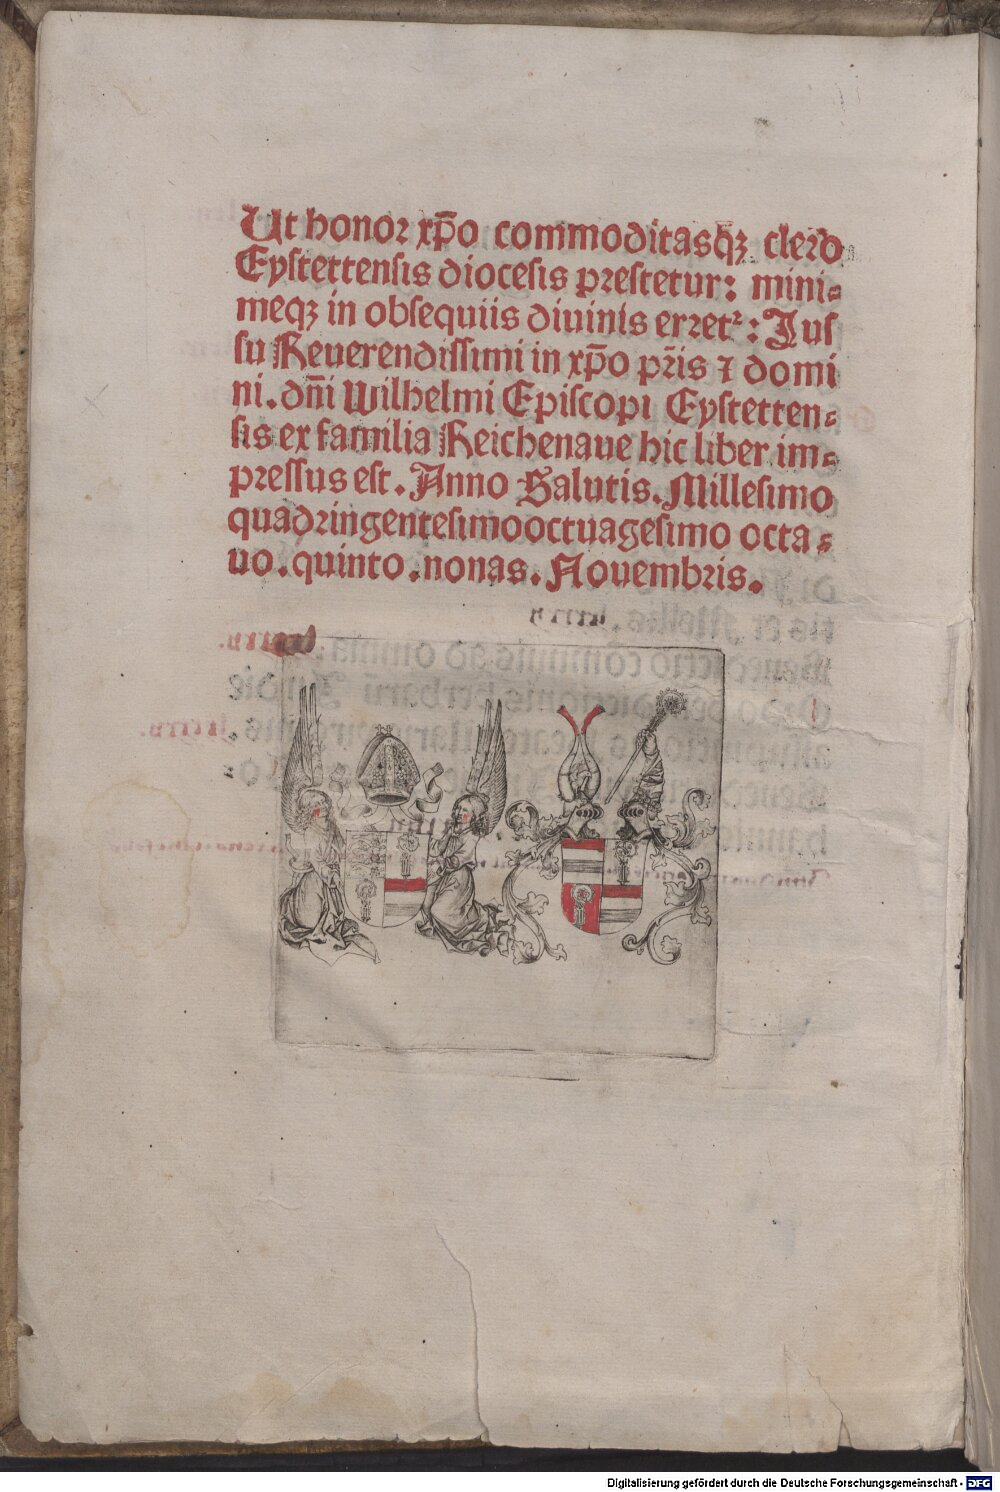 Ut honor xp̄o commoditasq̃ꝫ clero
Eystettensis diocesis prestetur: mini⸗
meqꝫ in obsequiis diuinis erretᷣ: Jus
su Reuerendissimi in xp̄o pr̄is ⁊ domi
ni. dn̄i Wilhelmi Episcopi Eystetten⸗
sis ex familia Reichenaue hic liber im⸗
pressus est. Anno Salutis. Millesimo
quadringentesimooctuagesimo octa⸗
uo. quinto. nonas. Nouembris.
Digitalisierung gefördert durch die Deutsche Forschungsgemeinschaft - DFG